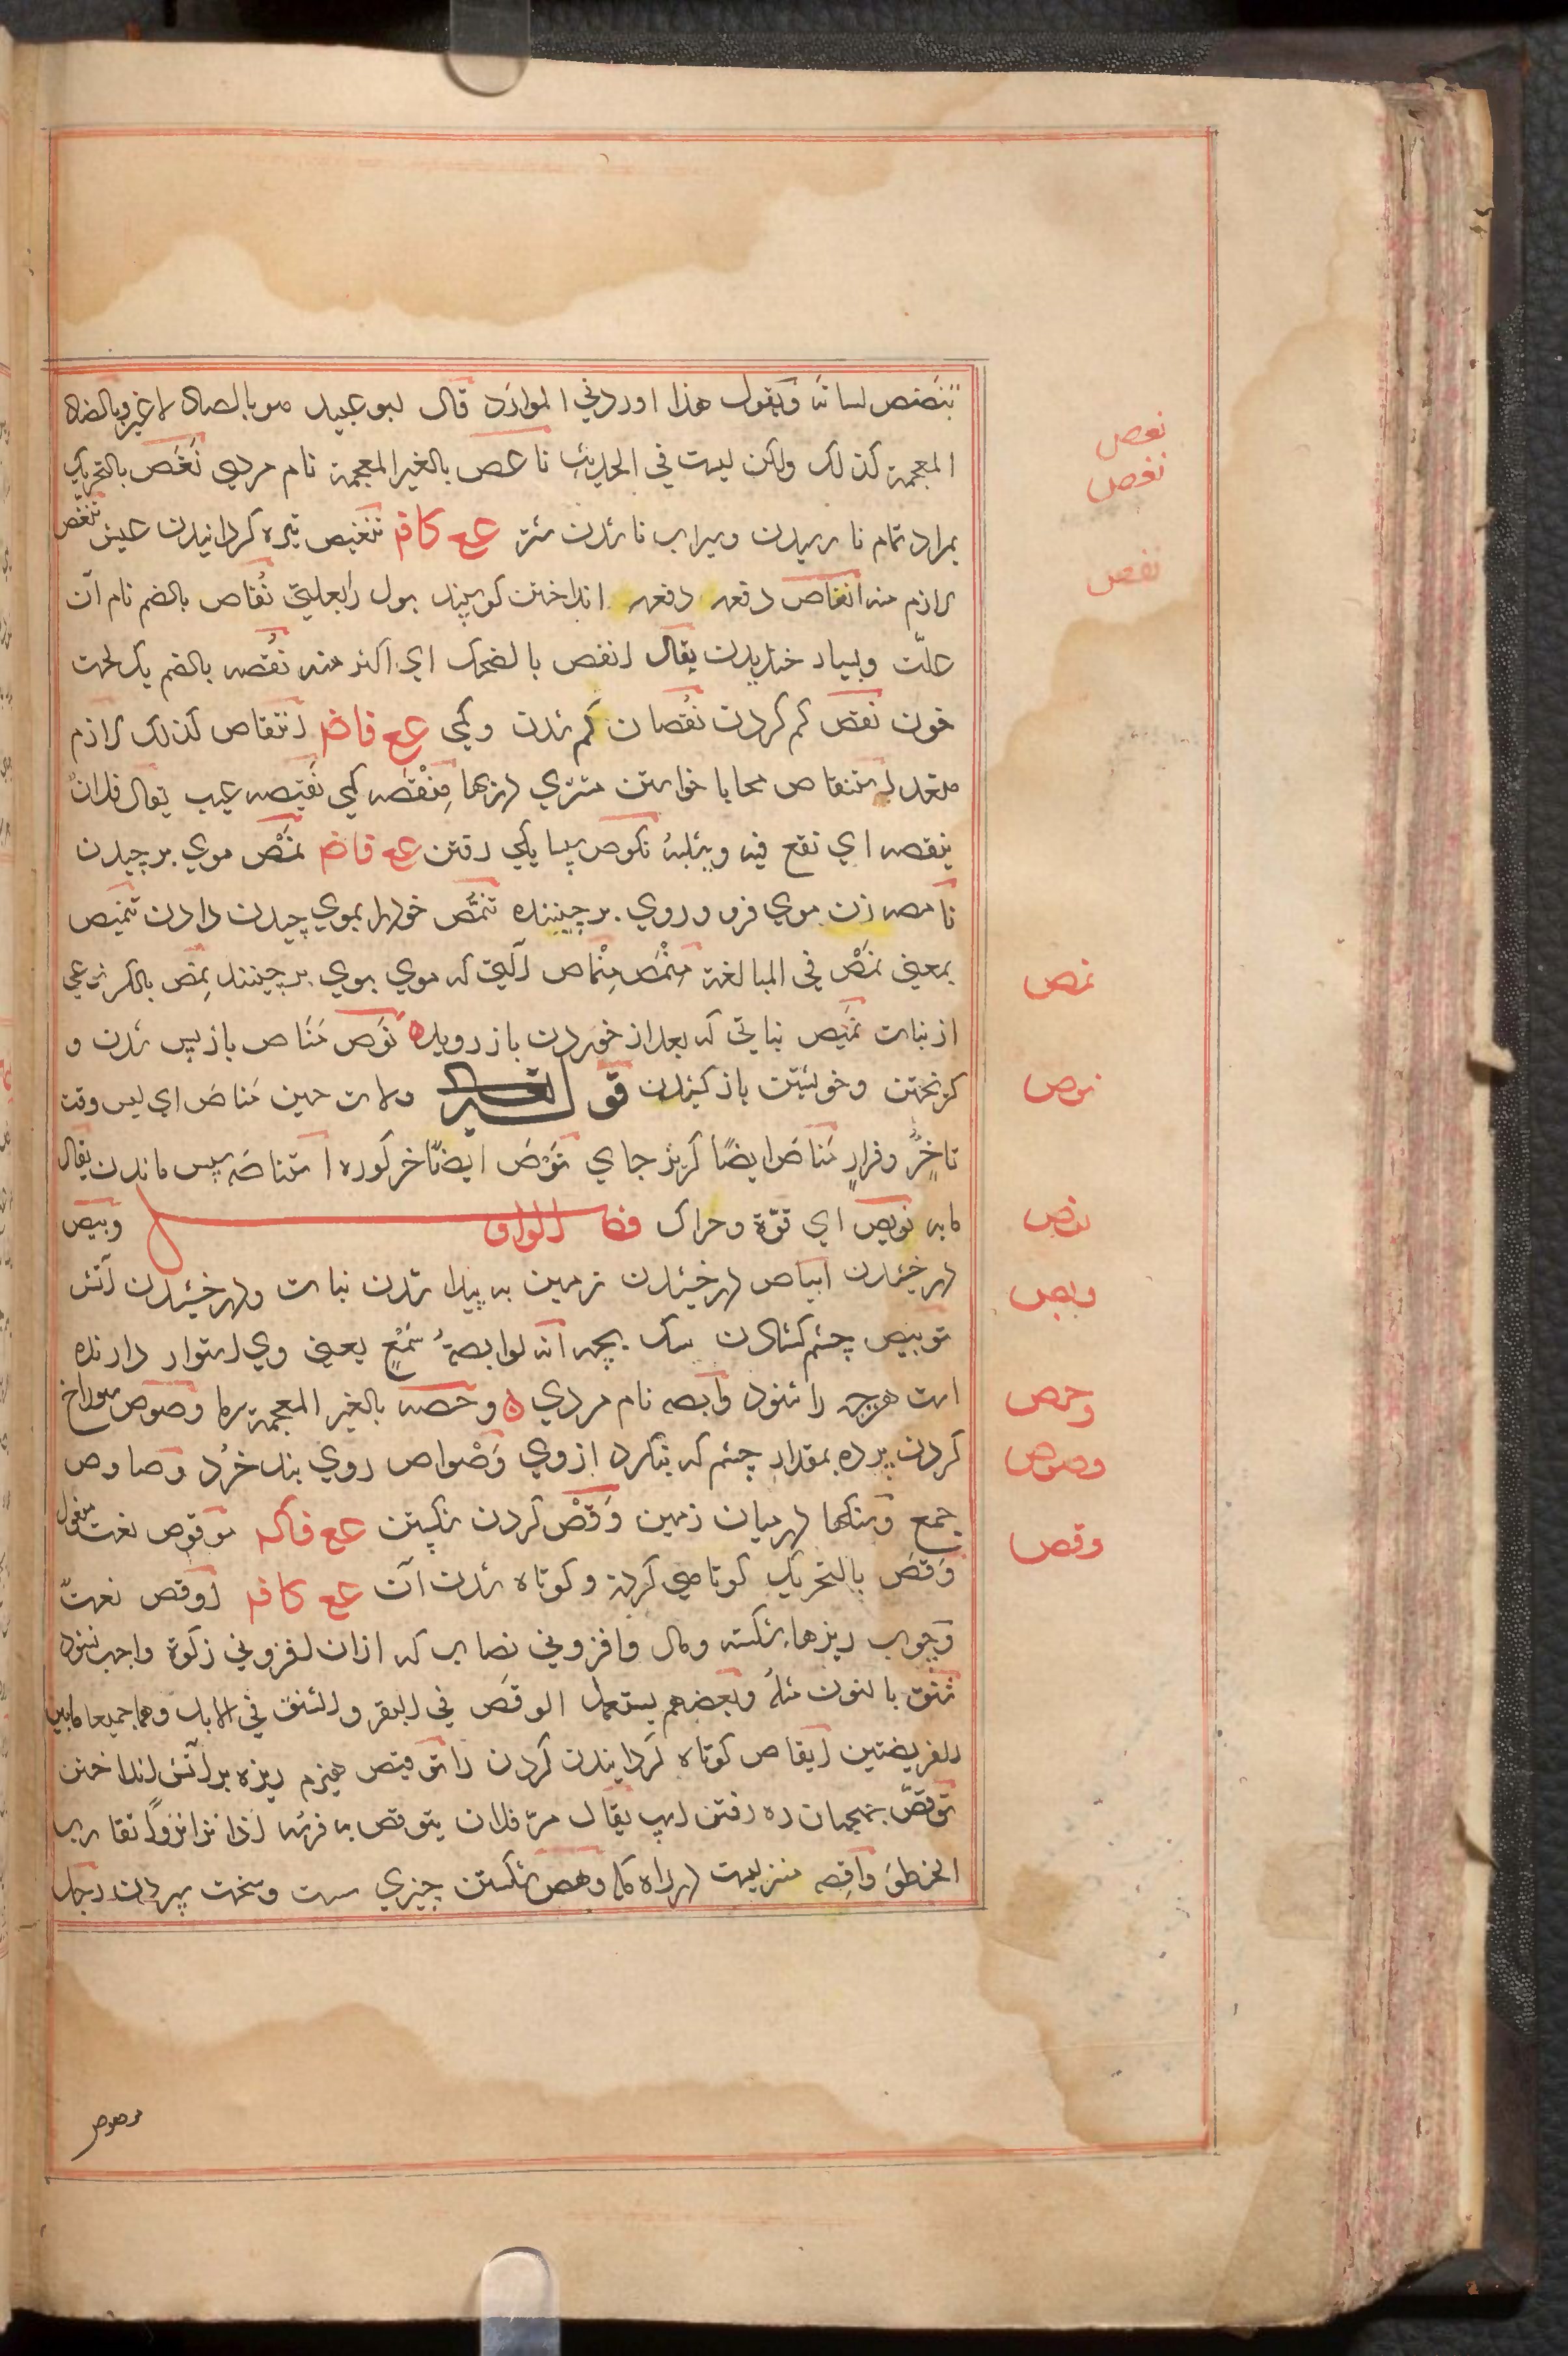 ینصنص لسانه ویقول هذا اوردنی الموارد قال ابو عبید هو بالصاد لا غیر وبالضاد
المعجمة کذلک ولکن لیست فی الحدیث ناعص بالغیر المعجمة نام مردی نَغَص بالتحریک
بمراد تمام نا رسیدن وسیراب نا شدن شتر عع کافر تنغیص تیره کردانیدن عیش تنغّص
لازم منه انفاص دفعه دفعه انداختن کوسپند بول را بعلتی نُفاص بالضم نام آن
علّت وبسیار خندیدن یقال انفص بالضحک ای اکثر منه نُفصه بالضم یک لخت
خون نقص کم کردن نُقصان کم شدن وکمی عع فاضر انتقاص کذلک لازم
متعد استنقاص محابا خواستن مشتری در بها مَنْقَصه کمی نَقیصه عیب یقال فلانٌ
ینقصه ای نقع فیه ویثلبهُ نکوص سپا یکی رفتن عع فاضر نَمْص موی بر چیدن
نامصه زن موی فرو وروی بر چیننده تنمّص خود را بموی چیدن دادن تنمیص
بمعنی نَمْص فی المبالغة مِنْمَص مِنْماص آلتی که موی بوی بر چینند نِمص بالکسر نوعی
از نبات نَمیص نباتی که بعد از خوردن باز روید ه نَوص مَناص باز پس شدن و
کریختن وخویشتن باز کشیدن قوله تعالی ولات حین مَناص ای لیس وقت
تاخّرٍ وفرارٍ مَناص ایضًا کریز جای نَوص ایضًا خر کوره استناصه سپس ماندن یقال
ما به نویص ای قوّة وحراک فصل الواو وبیص
درخشیدن ابیاص درخشیدن زمین به پیدا شدن نبات ودرخشیدن آتش
توبیص چشم کشادن سک بچه انه لوابصةُ سَمْعٍ یعنی وی استوار دارنده
است هرچه را شنود وابصه نام مردی ه وحصه بالغیر المعجمة سرما وصوص سوراخ
کردن پرده بمقدار چشم که بنکرد از وی وَصْواص روی بند خُرد وصاوص
جمع وسنکها در میان زمین وَقْص کردن شکستن عع فاکه موقوص نعت مفعول
وَقَص بالتحریک کوتاهی کردن وکوتاه شدن آن عع کافر اوقص نعت
وچوب ریزها شکسته ومال وافزونی نصاب که از ان افزونی زکوة واجب نشود
شَنَق بالنون مثلهُ وبعضهم یستعمل الوقَص فی البقر والشنق فی الابل وهما جمیعا ما بین
الفریضتین ایقاص کوتاه کردانیدن کردن را توقیص هیزم ریزه بر آتش انداختن
توقّص رفتن اسپ یقال مرّ فلان یتوقص به فرسُه اذا نزا نزواً تقارب
الخطو واقِصه منزلیست در راه مکه وهص شکستن چیزی سست وسخت سپردن رجل
نعص
نغص
نفص
نمص
نوص
وبص
وحص
وصوص
وقص
موهوص